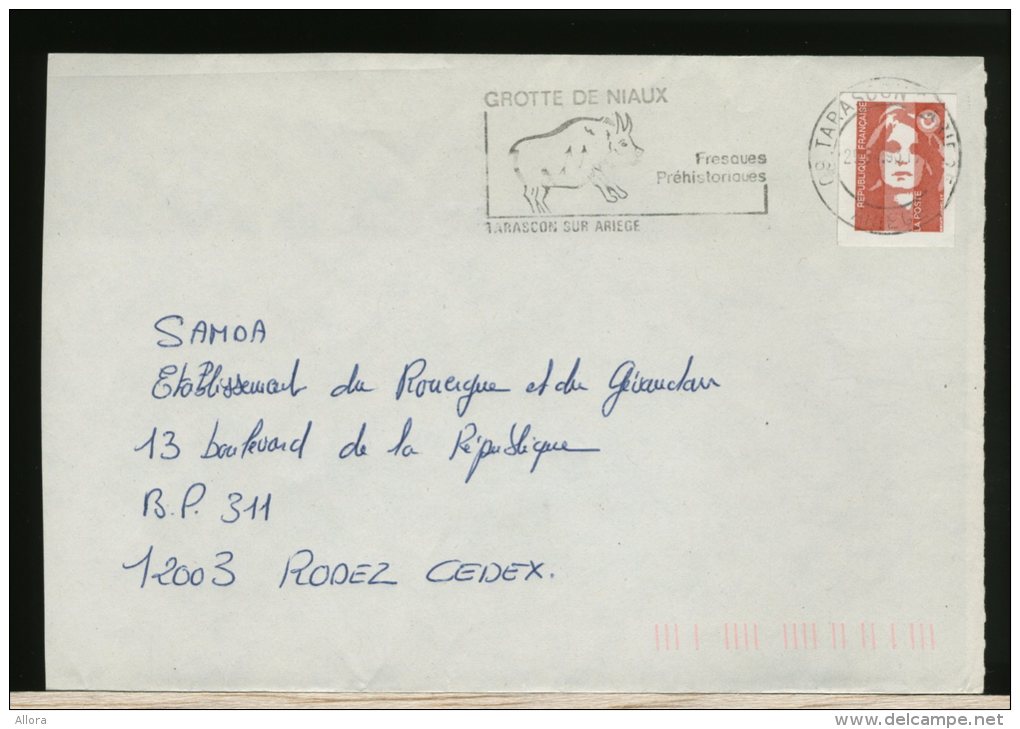 GROTTE DE NIAUX
Fresques
Préhistoriques
TARASCON SUR ARIEGE
09 TARASCON
ARIEGE
REPUBLIQUE FRANÇAISE
LA POSTE
SAMOA
Etablissement du Rouergue et du Gévaudan
13 boulevard de la République
B.P. 311
12003 RODEZ CEDEX.
Allora
www.delcampe.net